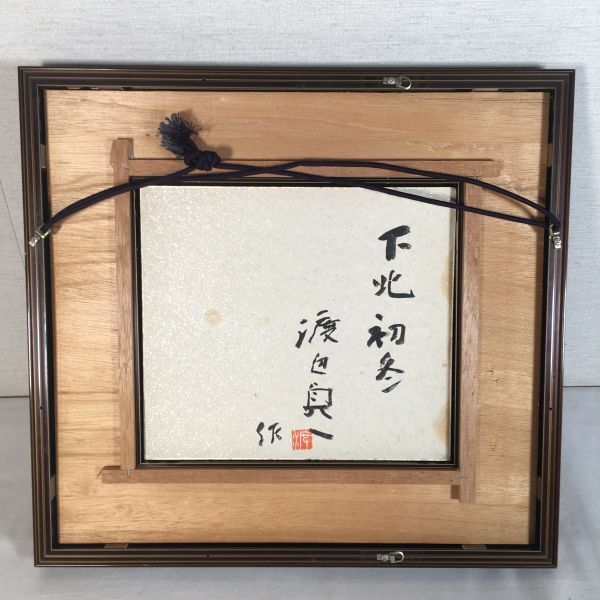 下北初冬
渡辺貞一
作